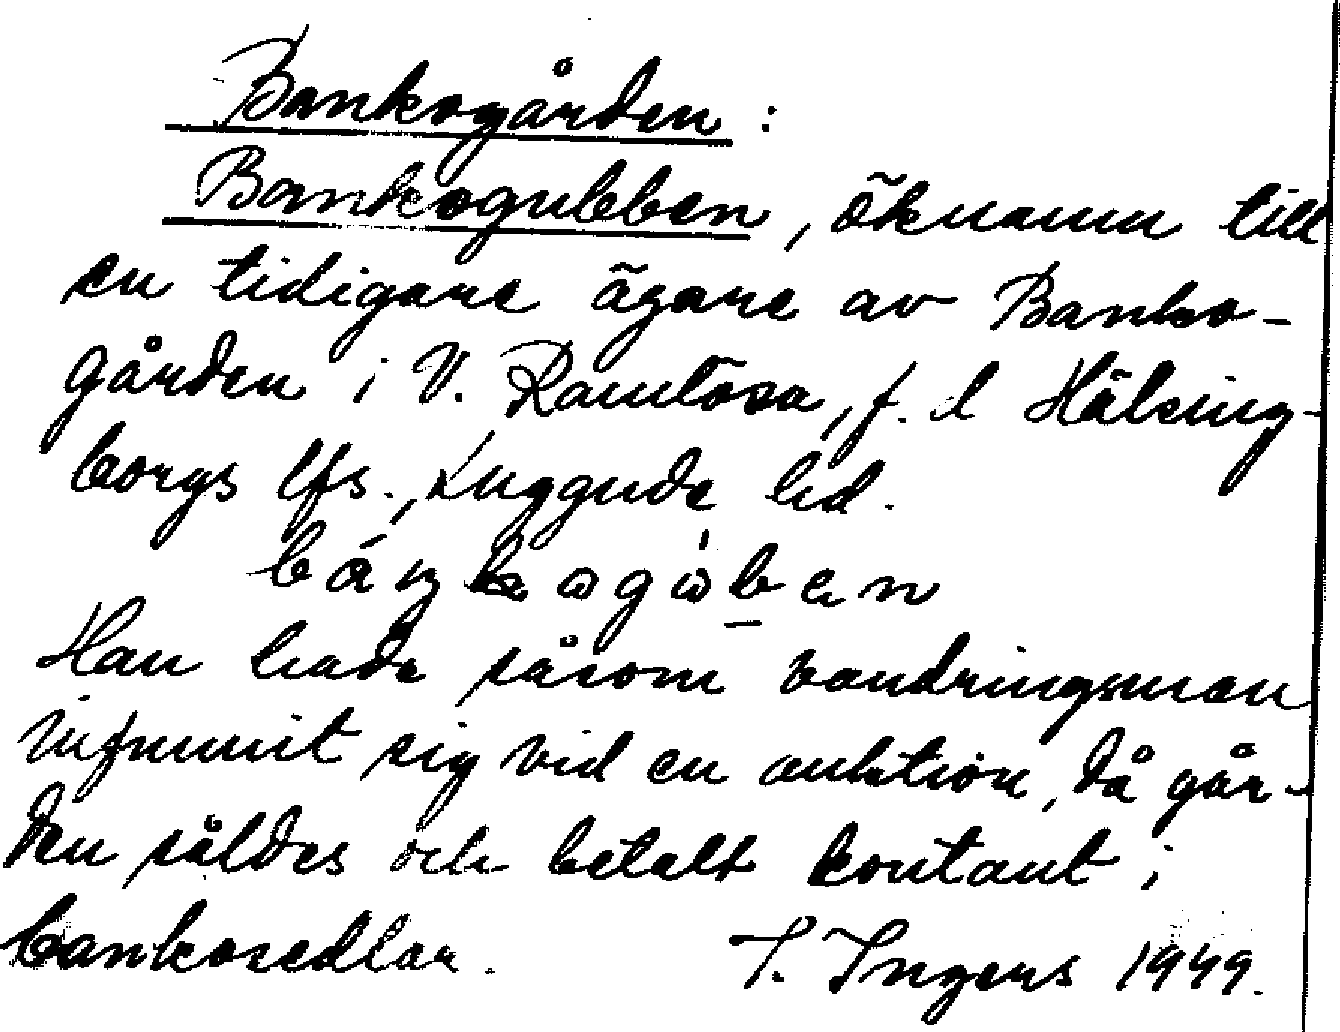 Bankogården :
Bankogubben, öknamn till
en tidigare ägare av Banko-
gården i V. Ramlösa, f. d Hälsing-
borgs lfs., Luggude hd.
Han hade såsom vandringsman
infunnit sig vid en auktion, då går-
den såldes och betalt kontant i
bankosedlar. I. Ingers 1949.